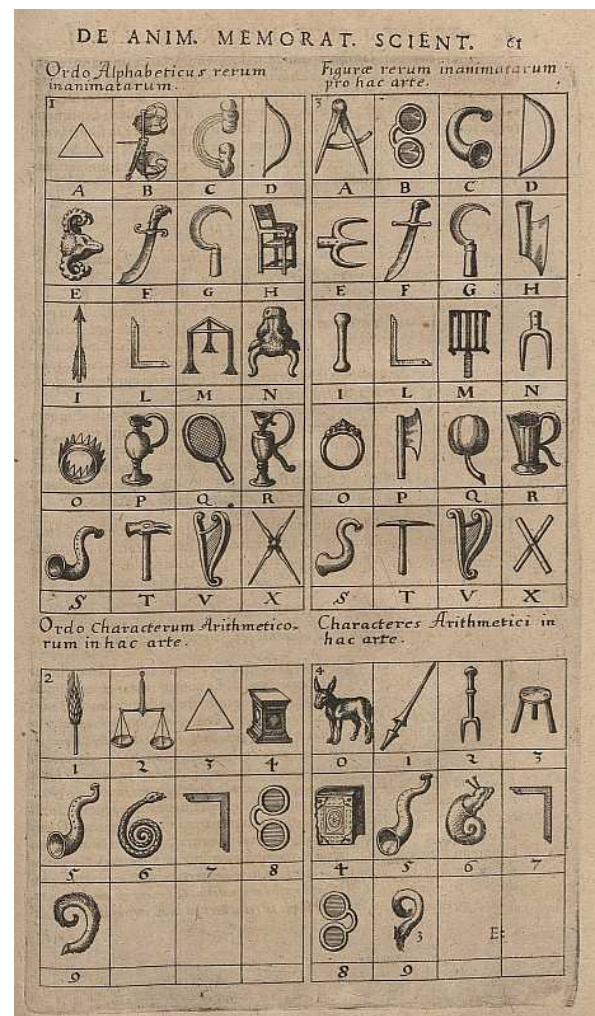 DE ANIM. MEMORAT. SCIENT. 61
Ordo Alphabeticus rerum
inanimatarum.
1
A B C D
E F G H
I L M N
O P Q R
S T V X
Figuræ rerum inanimatarum
pro hac arte.
3
A B C D
E F G H
I L M N
O P Q R
S T V X
Ordo Characterum Arithmetico-
rum in hac arte.
2
1 2 3 4
5 6 7 8
9
Characteres Arithmetici in
hac arte.
4
0 1 2 3
4 5 6 7
3 E:
8 9